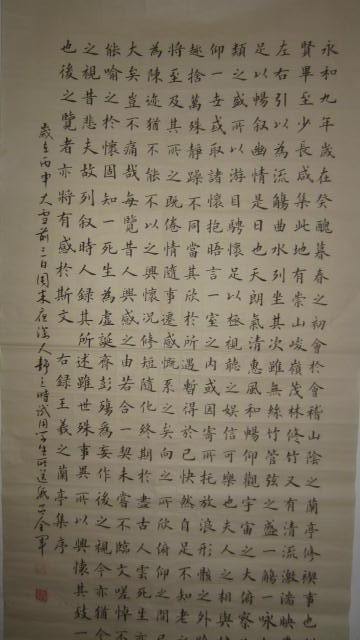 永和九年歲在癸醜暮春之初會於會稽山陰之蘭亭修禊事也
賢畢至少長咸集此地有崇山峻嶺茂林修竹又有清流激湍映
左右引以為流觴曲水列坐其次雖無絲竹管弦之盛一觴一詠
足以暢叙幽情是日也天朗氣清惠風和暢仰觀宇宙之大俯察
類之盛所以游目騁懷足以極視聽之娛信可樂也夫人之相與
仰一世或取諸懷抱晤言一室之內或因寄所托放浪形骸之外
趣捨萬殊靜躁不同當其欣於所遇暫得於己快然自足不知老
將至及其所之既倦情隨事遷感慨系之矣向之所欣俯仰之間已
為陳迹猶不能不以之興懷況修短隨化終期於盡古人雲死生亦
大矣豈不痛哉每覽昔人興感之由若合一契未嘗不臨文嗟悼不
能喻之於懷固知一死生為虛誕齊彭殤為妄作後之視今亦猶今
之視昔悲夫故列叙時人錄其所述雖世殊事異所以興懷其致一
也後之覽者亦將有感於斯文 右録王羲之蘭亭集序
歲在丙申大雪前三日周末夜深人静之時試用學生所送紙